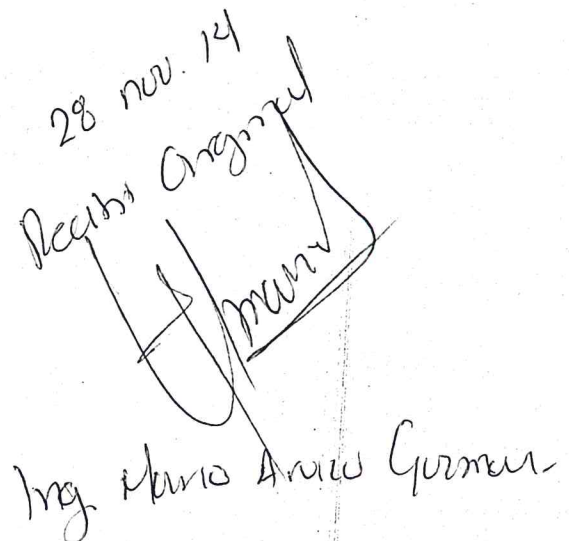 28 nov. 14
Recibi Original
Ing. Mario Guzman